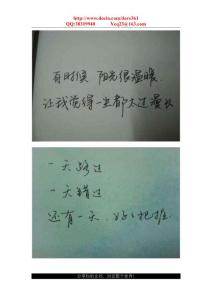 https://www.docin.com/dors361
QQ:38319940 Vcq23@hotmail.com
有时候 阳光很温暖
让我觉得一生都太过漫长
一天路过
一天错过
还有一天，好好把握